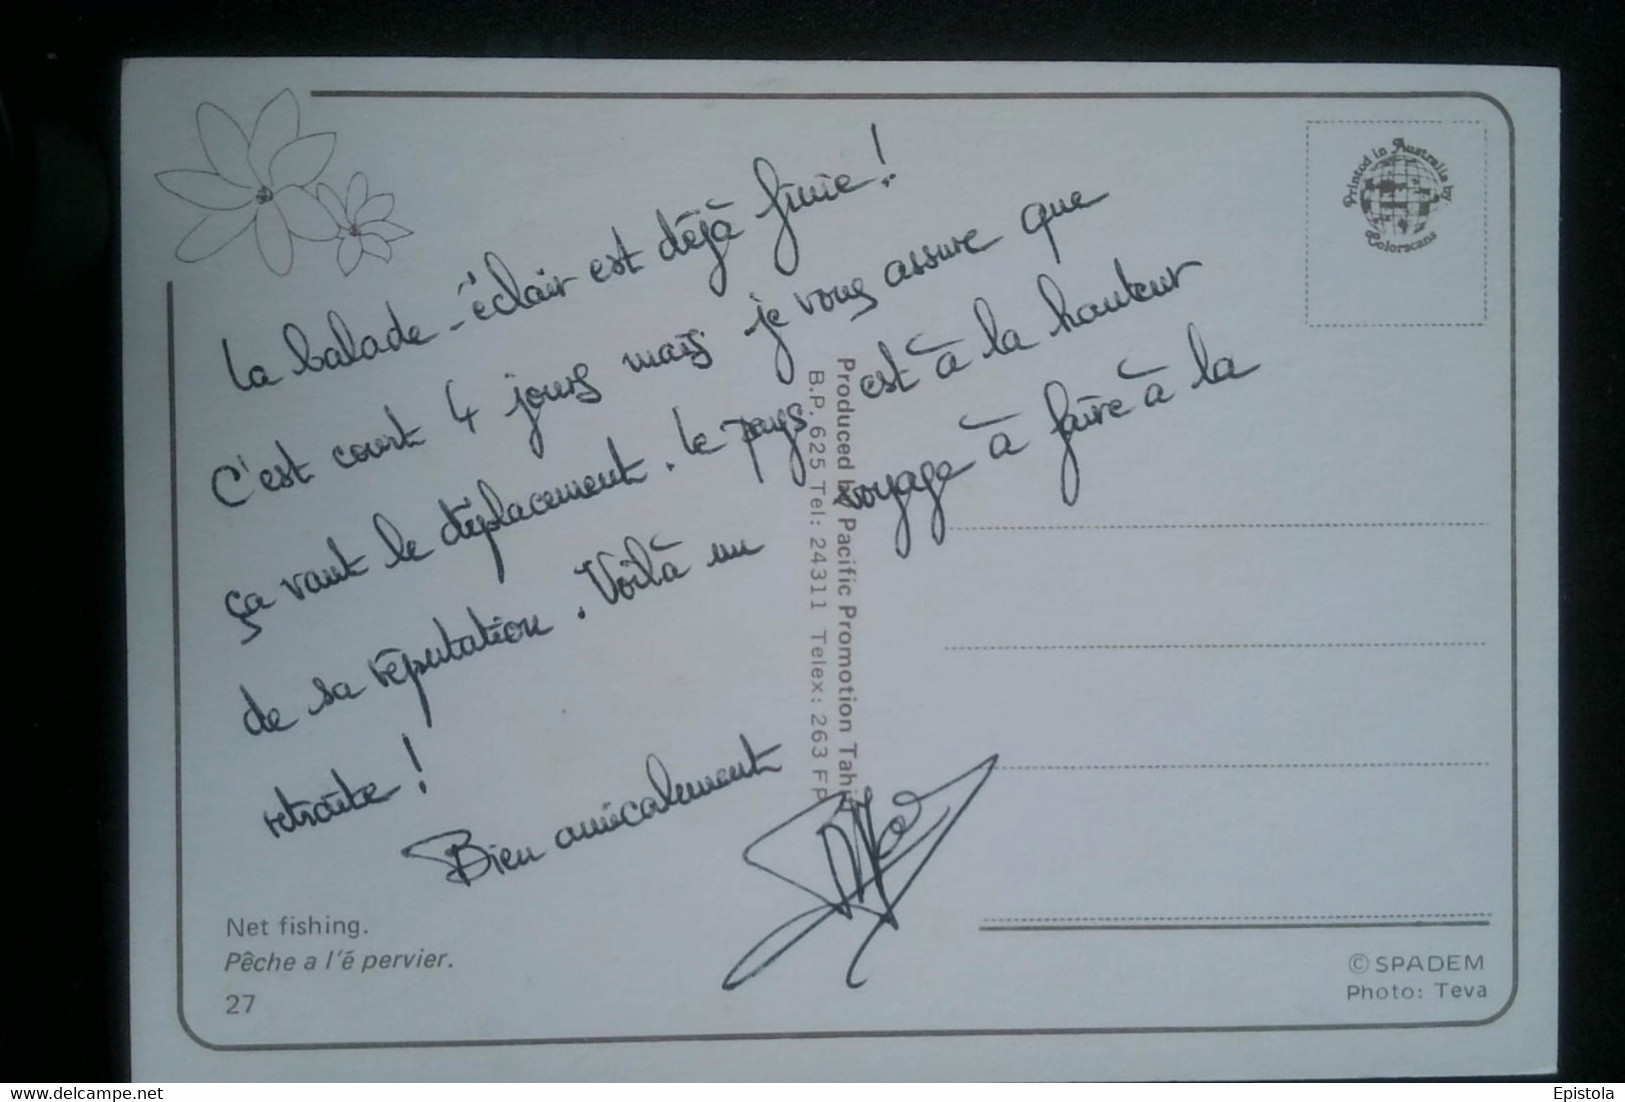 La balade-éclair est déjà finie!
C'est court 4 jours mais je vous assure que
ça vaut le déplacement. Le pays est à la hauteur
de sa réputation. Voilà un voyage à faire à la
retraite!
Bien amicalement
Net fishing.
Pêche a l'é pervier.
27
Produced by Pacific Promotion Tahiti
B.P. 625 Tel: 24311 Telex: 263 FP
Printed in Australia by
Colorscans
© SPADEM
Photo: Teva
www.delcampe.net
Epistola